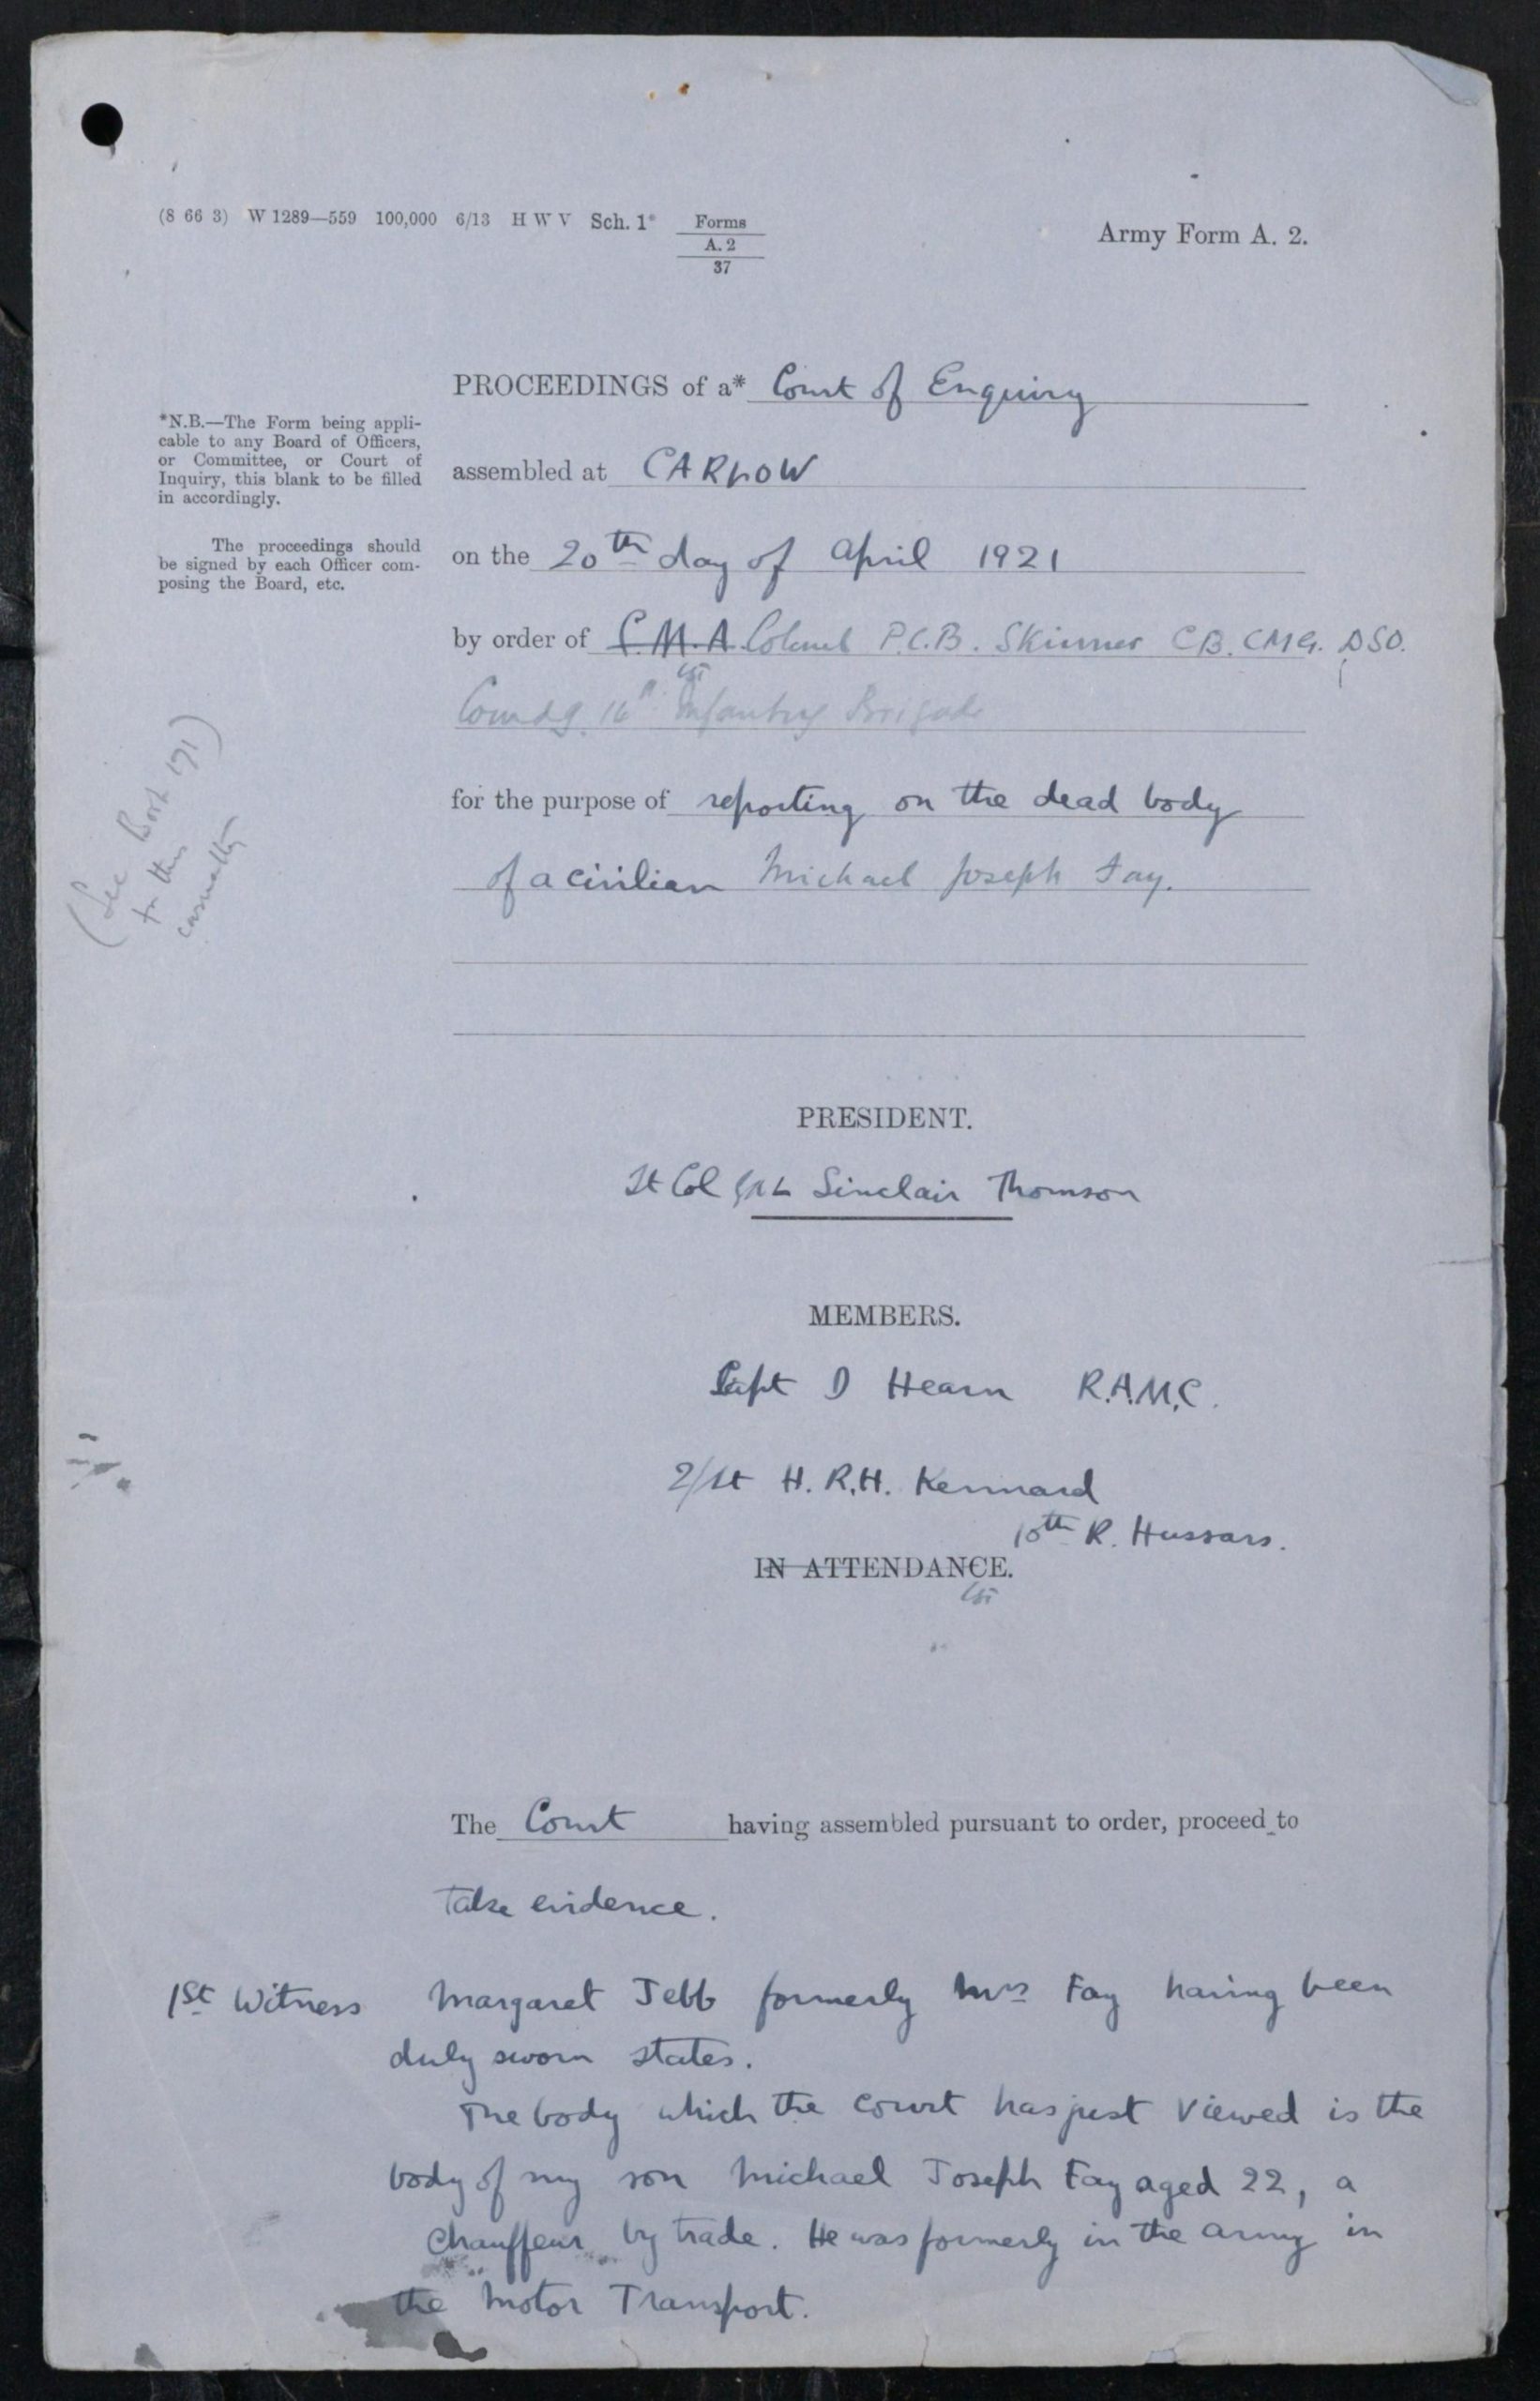 (8 66 3) W 1289—559 100,000 6/13 H W V Sch. 1* Forms
A. 2
37
Army Form A. 2.
PROCEEDINGS of a* Court of Enquiry
*N.B.—The Form being appli-
cable to any Board of Officers,
or Committee, or Court of
Inquiry, this blank to be filled
in accordingly.
The proceedings should
be signed by each Officer com-
posing the Board, etc.
assembled at CARLOW
on the 20th day of April 1921
by order of C.M.A Colonel P.C.B. Skinner CB. CMG. DSO.
Comdg 16th Infantry Brigade
(See Book 171)
for this
casualty
for the purpose of reporting on the dead body
of a civilian Michael Joseph Fay.
PRESIDENT.
Lt Col Sinclair Thomson
MEMBERS.
Capt D Hearn R.A.M.C.
2/Lt H. R.H. Kennard
10th R. Hussars.
IN ATTENDANCE.
The Court having assembled pursuant to order, proceed to
take evidence.
1st Witness Margaret Jebb formerly Mrs Fay having been
duly sworn states.
The body which the court has just viewed is the
body of my son Michael Joseph Fay aged 22, a
chauffeur by trade. He was formerly in the army in
the Motor Transport.